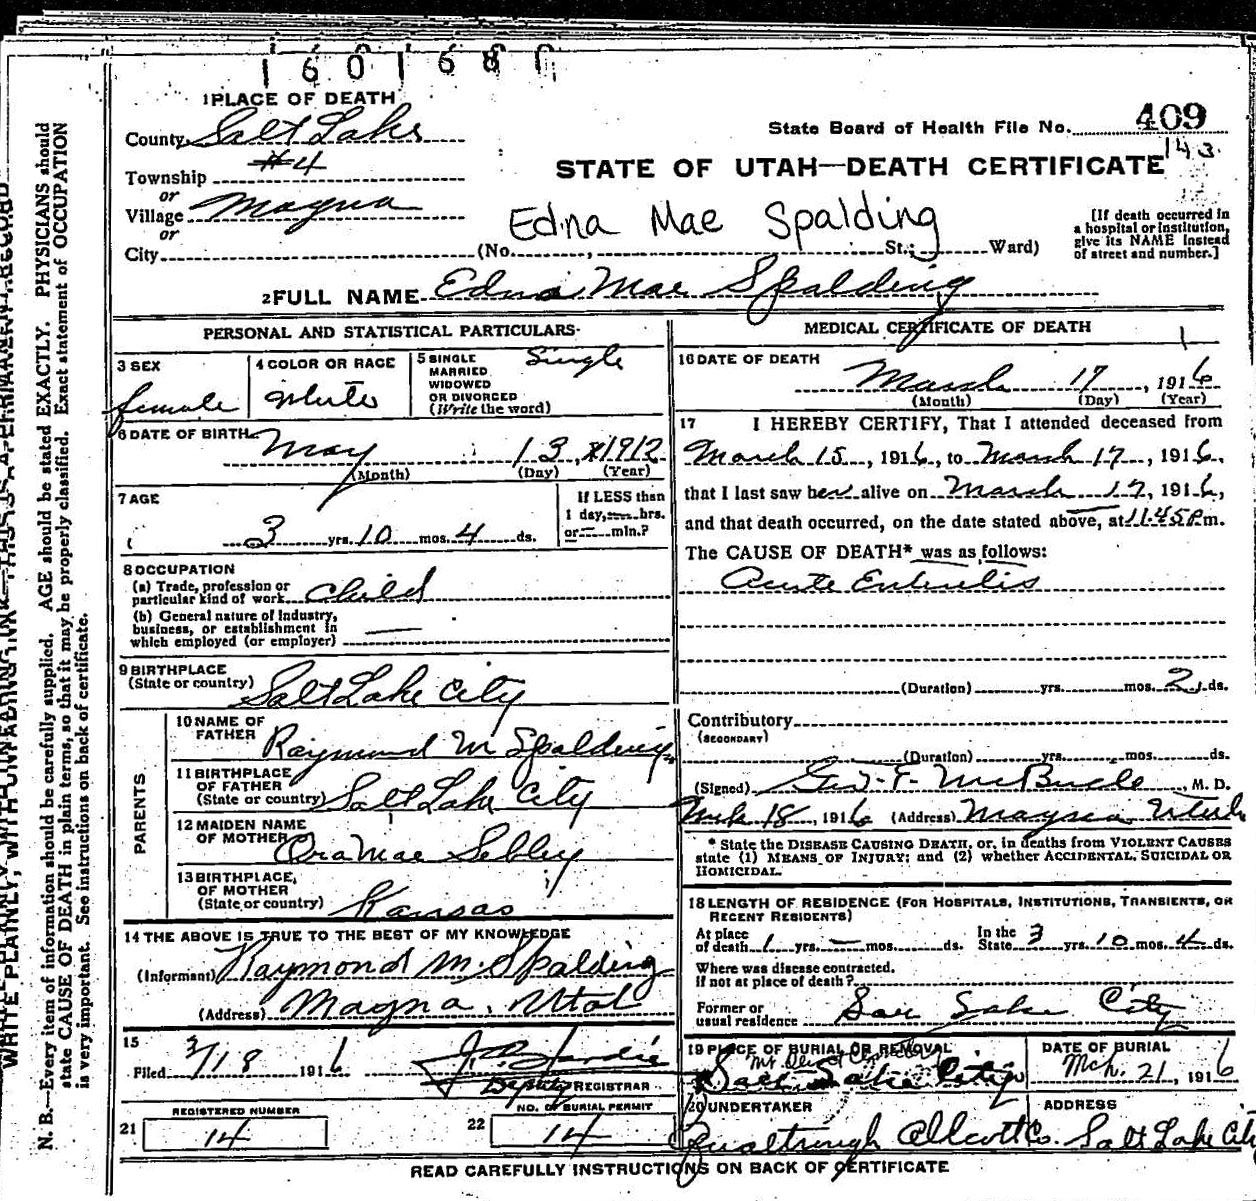 1601680
1 PLACE OF DEATH
County Salt Lake
State Board of Health File No. 409
#4
143
Township
STATE OF UTAH—DEATH CERTIFICATE
or
Village Magna
or
Edna Mae Spalding
[If death occurred in
a hospital or institution,
give its NAME instead
of street and number.]
City (No. , St.; Ward)
2 FULL NAME Edna Mae Spalding
PERSONAL AND STATISTICAL PARTICULARS
3 SEX
female
4 COLOR OR RACE
White
5 SINGLE
MARRIED
WIDOWED
OR DIVORCED
(Write the word)
Single
6 DATE OF BIRTH
May 13, 1912
(Month) (Day) (Year)
7 AGE
3 yrs. 10 mos. 4 ds.
If LESS than
1 day, hrs.
or min.?
8 OCCUPATION
(a) Trade, profession or
particular kind of work child
(b) General nature of Industry,
business, or establishment in
which employed (or employer)
9 BIRTHPLACE
(State or country) Salt Lake City
PARENTS
10 NAME OF
FATHER Raymond M Spalding
11 BIRTHPLACE
OF FATHER
(State or country) Salt Lake City
12 MAIDEN NAME
OF MOTHER Ora Mae
13 BIRTHPLACE
OF MOTHER
(State or country) Kansas
14 THE ABOVE IS TRUE TO THE BEST OF MY KNOWLEDGE
(Informant) Raymond M. Spalding
(Address) Magna, Utah
15
Filed 3/18 1916
J. Hardie
Deputy REGISTRAR
REGISTERED NUMBER
21 14
NO. OF BURIAL PERMIT
22 14
MEDICAL CERTIFICATE OF DEATH
16 DATE OF DEATH
March 17, 1916
(Month) (Day) (Year)
17 I HEREBY CERTIFY, That I attended deceased from
March 15, 1916, to March 17, 1916,
that I last saw her alive on March 17, 1916,
and that death occurred, on the date stated above, at 11.45 P m.
The CAUSE OF DEATH* was as follows:
Acute
(Duration) yrs. mos. 2 ds.
Contributory
(SECONDARY)
(Duration) yrs. mos. ds.
(Signed) M. D.
Mch 18, 1916 (Address) Magna Utah
* State the DISEASE CAUSING DEATH, or, in deaths from VIOLENT CAUSES
state (1) MEANS OF INJURY; and (2) whether ACCIDENTAL, SUICIDAL OR
HOMICIDAL.
18 LENGTH OF RESIDENCE (FOR HOSPITALS, INSTITUTIONS, TRANSIENTS, OR
RECENT RESIDENTS)
At place
of death 1 yrs. — mos. ds. In the
State 3 yrs. 10 mos. 4 ds.
Where was disease contracted,
if not at place of death?
Former or
usual residence Salt Lake City
19 PLACE OF BURIAL OR REMOVAL
Mt Olivet
Salt Lake City
DATE OF BURIAL
Mch. 21, 1916
20 UNDERTAKER
Qualtrough Allcott Co.
ADDRESS
Salt Lake City
READ CAREFULLY INSTRUCTIONS ON BACK OF CERTIFICATE
N. B.—Every item of information should be carefully supplied. AGE should be stated EXACTLY. PHYSICIANS should
state CAUSE OF DEATH in plain terms, so that it may be properly classified. Exact statement of OCCUPATION
is very important. See instructions on back of certificate.